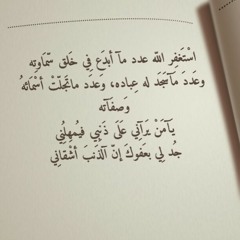 اسْتَغفِر اللّه عدد مآ أبدَع فِي خَلق سّمَاوتِه
وعَدد مَآسَجَد له عِباده، وعَدد ماتَجلّتْ أسْمَائهُ
وَصفَآته
يآمَنْ يَرآنِي عَلَى ذَنِبي فَيمهِلُنِي
جُد لِي بعَفوكَ إنّ آلذنبَ أشقَانِي